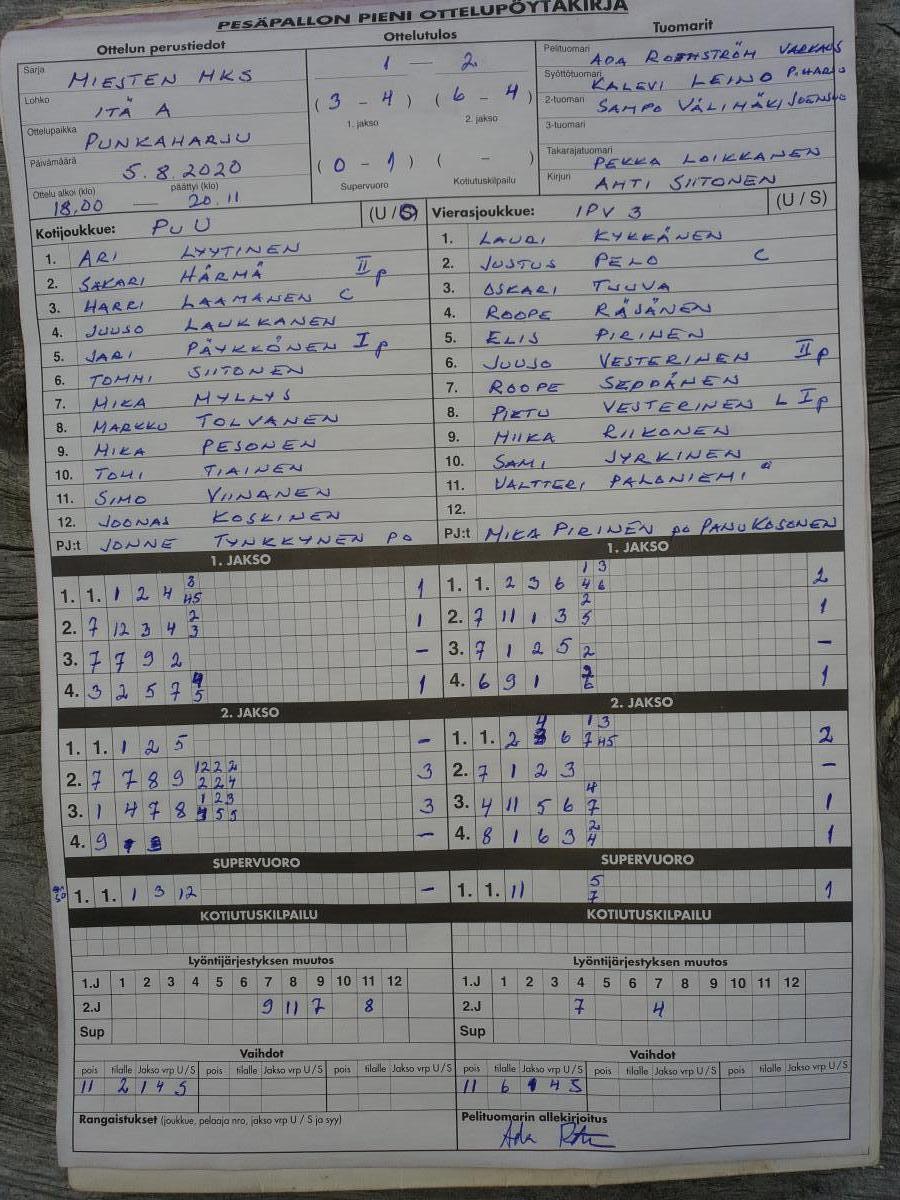 PESÄPALLON PIENI OTTELUPÖYTÄKIRJA
Ottelun perustiedot Ottelutulos Tuomarit
Sarja MIESTEN MKS
Lohko ITÄ A
Ottelupaikka PUNKAHARJU
Päivämäärä 5.8.2020
Ottelu alkoi (klo) päättyi (klo)
18.00 — 20.11
1 — 2
(3 - 4) (6 - 4)
1. jakso 2. jakso
(0 - 1) ( - )
Supervuoro Kotiutuskilpailu
Pelituomari ADA ROTHSTRÖM VARKAUS
Syöttötuomari KALEVI LEINO P.HARJU
2-tuomari SAMPO VÄLIMÄKI JOENSUU
3-tuomari
Takarajatuomari PEKKA LOIKKANEN
Kirjuri AHTI SIITONEN
Kotijoukkue: PUU (U / S)
1. ARI LYYTINEN
2. SAKARI HÄRMÄ II p
3. HARRI LAAMANEN C
4. JUUSO LAUKKANEN
5. JARI PÄYKKÖNEN I p
6. TOMMI SIITONEN
7. MIKA MYLLYS
8. MARKKU TOLVANEN
9. MIKA PESONEN
10. TOMI TIAINEN
11. SIMO VIINANEN
12. JOONAS KOSKINEN
PJ:t JONNE TYNKKYNEN PO
Vierasjoukkue: IPV 3 (U / S)
1. LAURI KYKKÄNEN
2. JUSTUS PELO C
3. OSKARI TUUVA
4. ROOPE RÄSÄNEN
5. ELIS PIRINEN
6. JUUSO VESTERINEN II p
7. ROOPE SEPPÄNEN
8. PIETU VESTERINEN L I p
9. MIIKA RIIKONEN
10. SAMI JYRKINEN
11. VALTTERI PALONIEMI
12.
PJ:t MIKA PIRINEN PO PANU KOSONEN
1. JAKSO
1. 1. 1 2 4 3 45 1
2. 7 12 3 4 2 3 1
3. 7 7 9 2 –
4. 3 2 5 7 4 5 1
1. JAKSO
1. 1. 2 3 6 1 3 4 6 2
2. 7 11 1 3 2 5 1
3. 7 1 2 5 2 –
4. 6 9 1 2 6 1
2. JAKSO
1. 1. 1 2 5 –
2. 7 7 8 9 12 2 2 2 2 4 3
3. 1 4 7 8 1 2 3 4 5 5 3
4. 9 –
2. JAKSO
1. 1. 2 4 6 1 3 7 45 2
2. 7 1 2 3 –
3. 4 11 5 6 4 7 1
4. 8 1 6 3 2 4 1
SUPERVUORO
1. 1. 1 3 12 –
SUPERVUORO
1. 1. 11 5 7 1
KOTIUTUSKILPAILU KOTIUTUSKILPAILU
Lyöntijärjestyksen muutos
1.J 1 2 3 4 5 6 7 8 9 10 11 12
2.J 9 11 7 8
Sup
Lyöntijärjestyksen muutos
1.J 1 2 3 4 5 6 7 8 9 10 11 12
2.J 7 4
Sup
Vaihdot
pois tilalle Jakso vrp U / S pois tilalle Jakso vrp U / S pois tilalle Jakso vrp U / S
11 2 1 4 S
Vaihdot
pois tilalle Jakso vrp U / S pois tilalle Jakso vrp U / S pois tilalle Jakso vrp U / S
11 6 1 4 S
Rangaistukset (joukkue, pelaaja nro, jakso vrp U / S ja syy)
Pelituomarin allekirjoitus
Ada